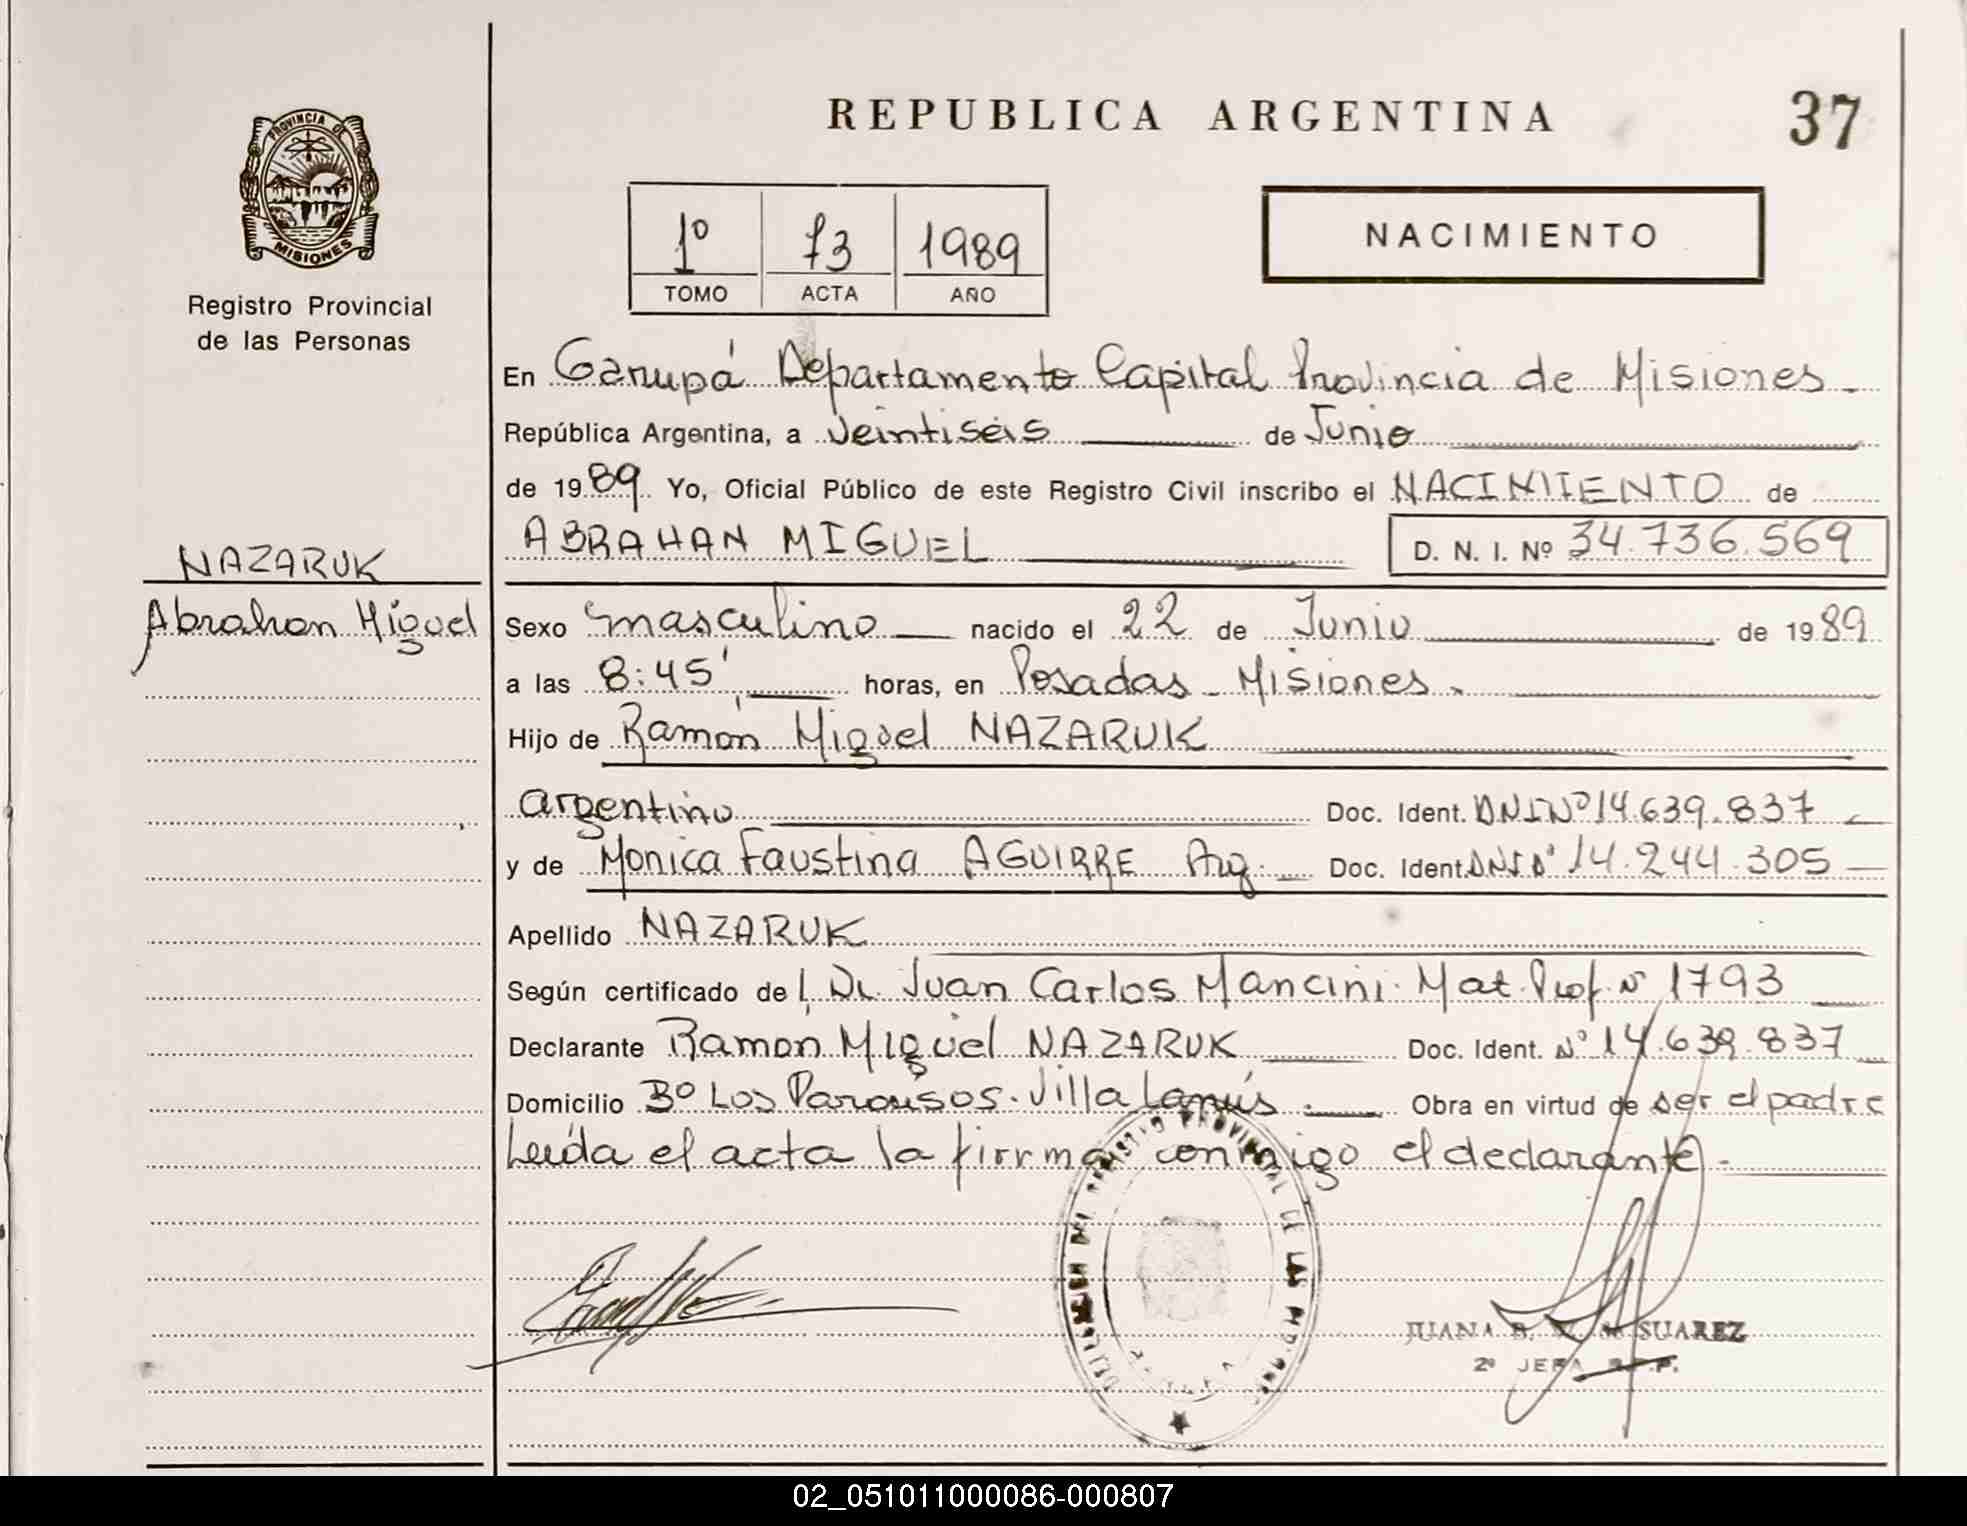 PROVINCIA DE
MISIONES
Registro Provincial
de las Personas
NAZARUK
Abrahan Miguel
REPUBLICA ARGENTINA
37
1º 73 1989
TOMO ACTA AÑO
NACIMIENTO
En Garupá Departamento Capital Provincia de Misiones.
República Argentina, a veintiseis de Junio
de 1989. Yo, Oficial Público de este Registro Civil inscribo el NACIMIENTO de
ABRAHAN MIGUEL D. N. I. Nº 34.736.569
Sexo masculino nacido el 22 de Junio de 1989
a las 8:45' horas, en Posadas - Misiones.
Hijo de Ramón Miguel NAZARUK
argentino Doc. Ident. DNI Nº 14.639.837
y de Monica Faustina AGUIRRE Arg. Doc. Ident. DNI Nº 14.244.305
Apellido NAZARUK
Según certificado del Dr. Juan Carlos Mancini. Mat. Prof. Nº 1793
Declarante Ramon Miguel NAZARUK Doc. Ident. Nº 14.639.837
Domicilio Bº Los Paraisos. Villa Lanús. Obra en virtud de ser el padre
Leída el acta la firma conmigo el declarante.
DELEGACION DEL REGISTRO PROVINCIAL DE LAS
JUANA B. SUAREZ
2ª JEFA
02_051011000086-000807